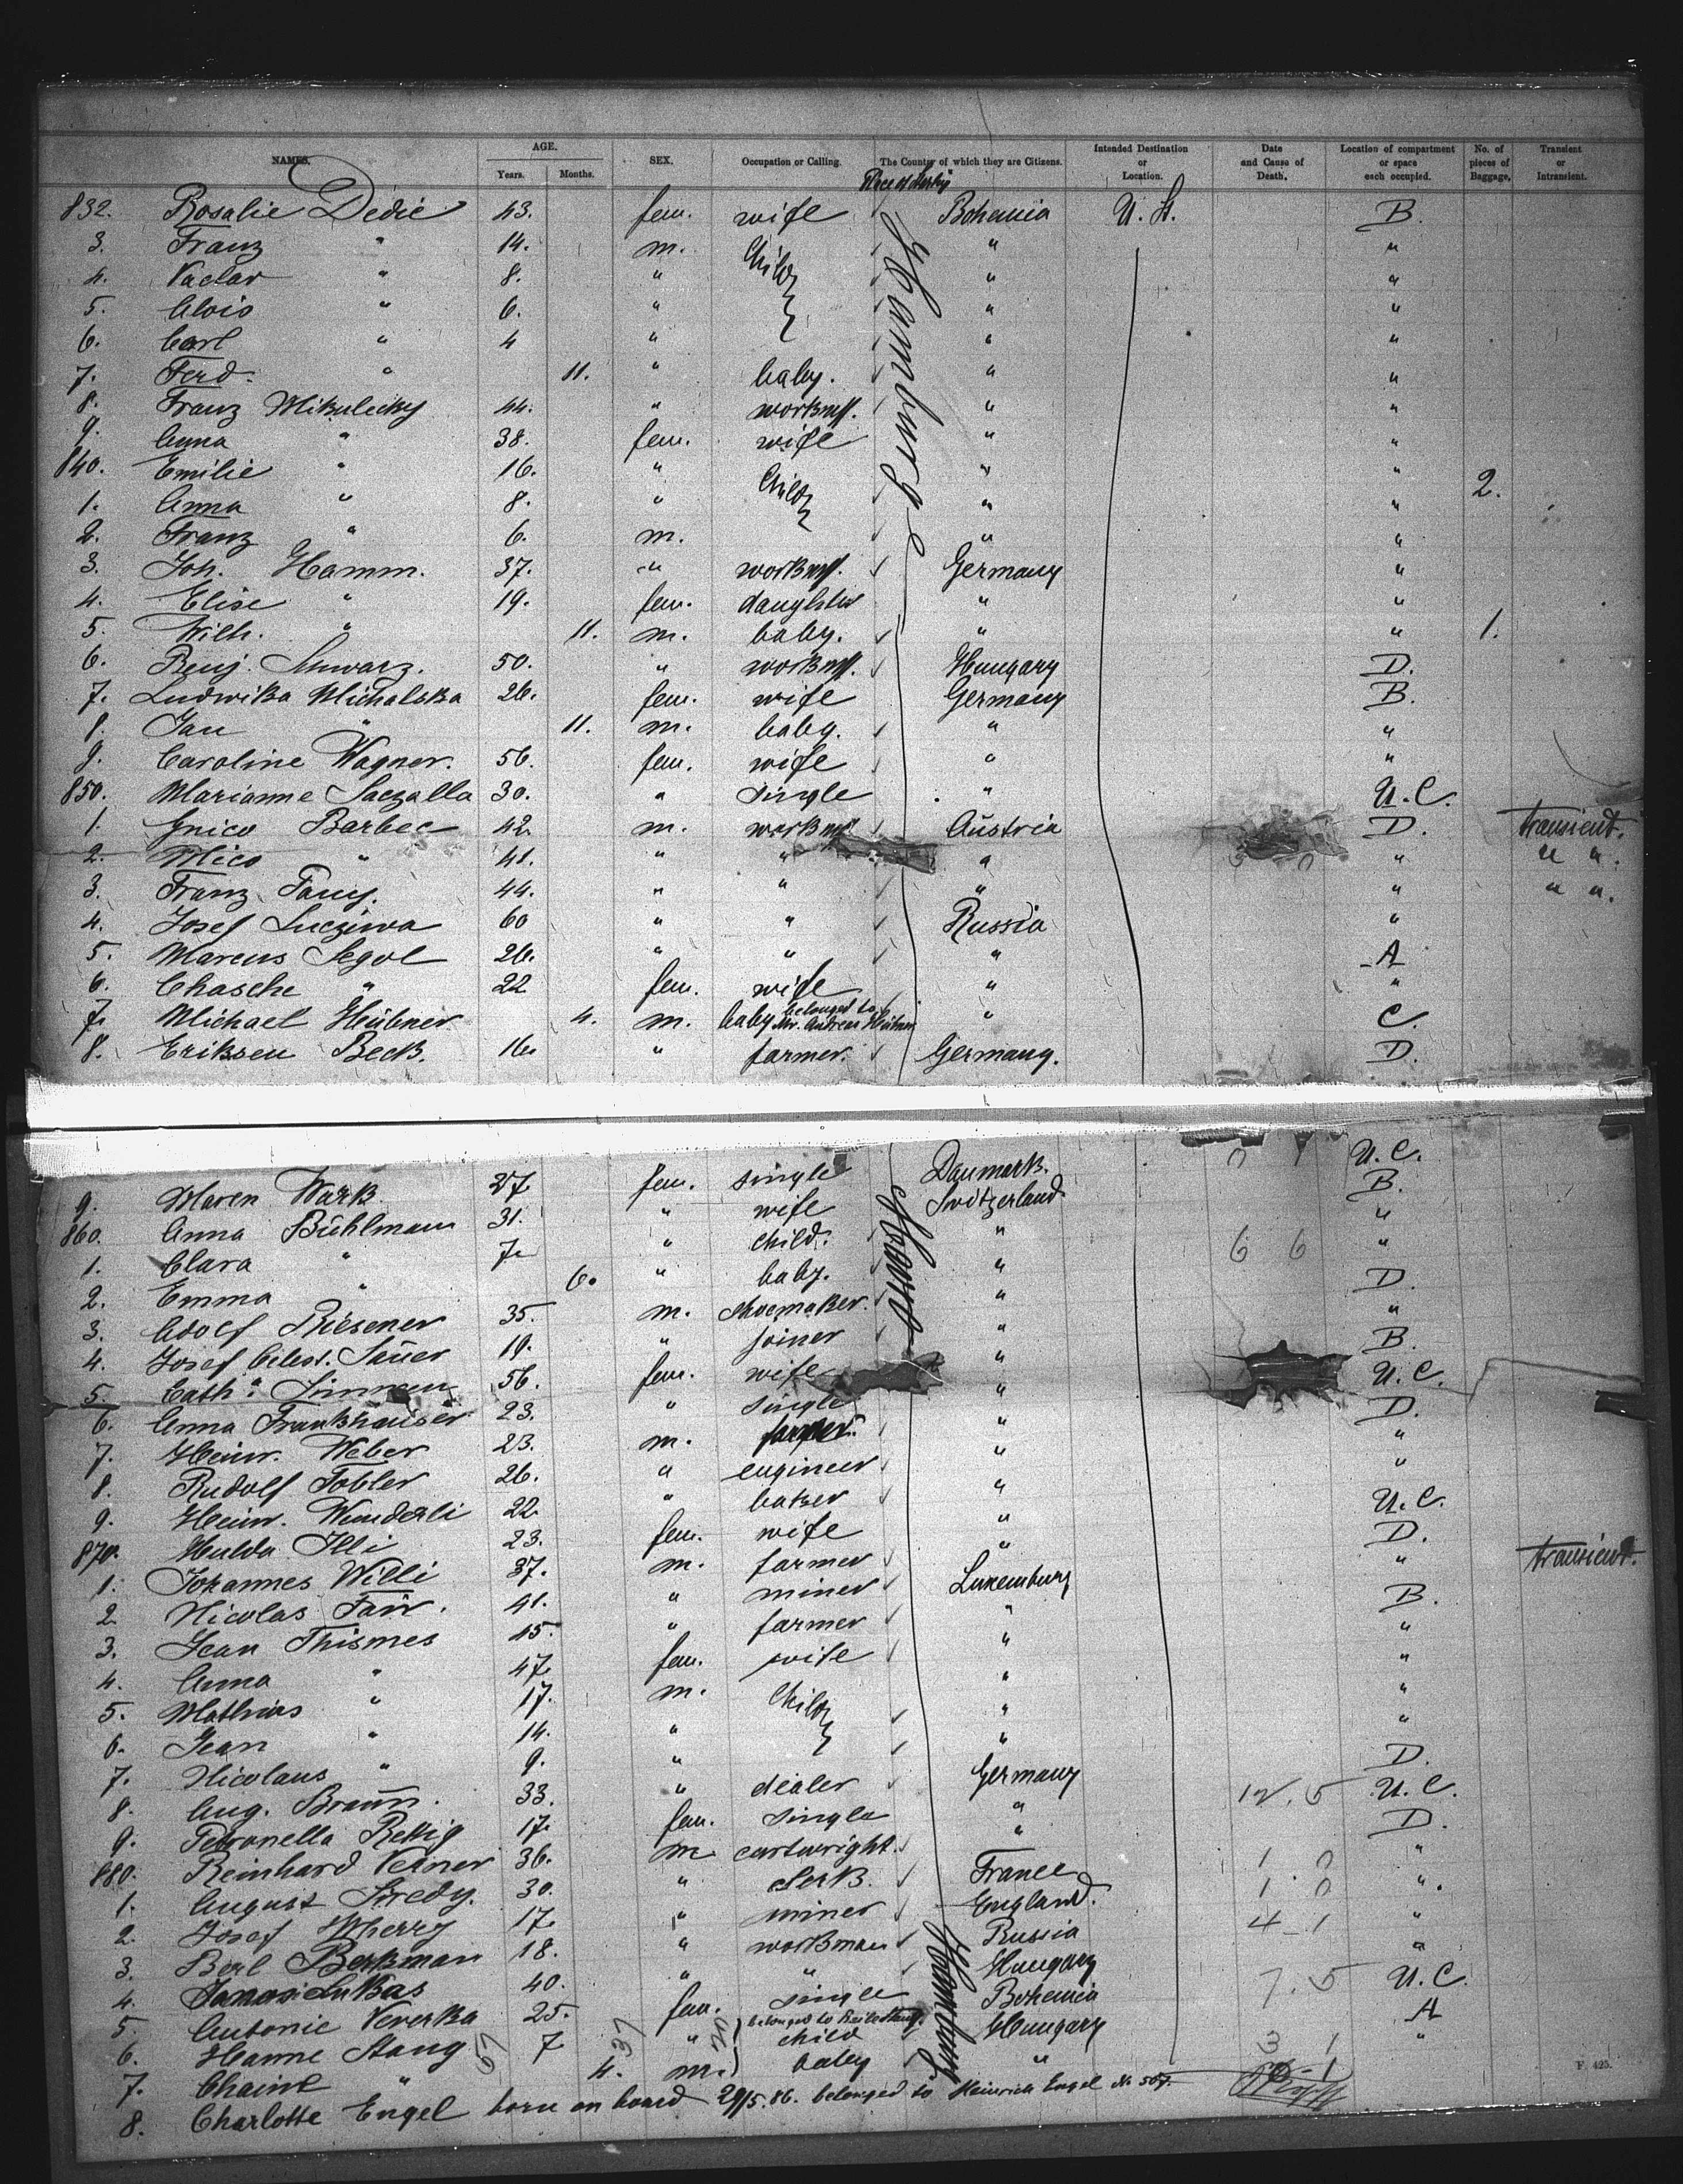 NAMES. AGE. Years. Months. SEX. Occupation or Calling. The Country of which they are Citizens. Intended Destination or Location. Date and Cause of Death. Location of compartment or space each occupied. No. of pieces of Baggage. Transient or Intransient.
832. Rosalie Dedic 43. fem. wife Bohemia U. St. B.
3. Franz " 14. m. Child " "
4. Vaclav " 8. " " "
5. Alois " 6. " " "
6. Carl " 4 " " "
7. Ferd. " 11. " baby. " "
8. Franz Mikulecky 44. " " "
9. Anna " 38. fem. wife " "
840. Emilie " 16. " Child " " 2.
1. Anna " 8. " " "
2. Franz " 6. m. " "
3. Joh. Hamm. 37. " Germany "
4. Elise " 19. fem. daughter " "
5. Wilh. " 11. m. baby. " " 1.
6. Benj. Schwarz. 50. " Hungary D.
7. Ludwika Michalska 26. fem. wife Germany B.
8. Jan " 11. m. baby. " "
9. Caroline Wagner. 56. fem. wife " "
850. Marianne 30. " single " U. C.
1. Barbec 42. m. Austria D. transient.
2. Mico " 41. " " " " " "
3. Franz 44. " " " " " "
4. Josef 60 " " Russia "
5. Marcus Segol 26. " " " A
6. Chasche " 22 fem. wife " "
7. Michael Hübner 4. m. baby belonged to Mr. Andreas Hübner " C.
8. Eriksen Beck. 16. " farmer. Germany. D.
9. Maren Wark 27 fem. single Danmark. U. C.
860. Anna Bühlmann 31. " wife Switzerland B.
1. Clara " 7 " child. " "
2. Emma " 6. " baby. " " 6 6
3. Adolf Riesener 35. m. shoemaker. " D.
4. Josef Celest. Sauer 19. " joiner " "
5. Cath. 56. fem. wife " B.
6. Anna Frankhauser 23. " single " U. C.
7. Heinr. Weber 23. m. farmer. " D.
8. Rudolf Tobler 26. " engineer " "
9. Heinr. Wunderli 22. " baker " "
870. Hulda Illi 23. fem. wife " U. C.
1. Johannes Willi 37. m. farmer " D. transient.
2. Nicolas 41. " miner Luxemburg "
3. Jean Thismes 45. " farmer " B.
4. Anna " 47. fem. wife " "
5. Mathias " 17. m. Child " "
6. Jean " 14. " " "
7. Nicolaus " 9. " " "
8. Aug. Braun. 33. " dealer Germany D.
9. Petronella Rettig 17. fem. single " 12. 5 U. C.
880. Reinhard Verner 36. m cartwright. " D.
1. August 30. " clerk. France 1 0 "
2. Josef Wherry 17. " miner England. 1 0 "
3. Berl Berkman 18. " workman Russia 4 1 "
4. Lukas 40. " " Hungary "
5. Antonie Veverka 25. fem. single Bohemia 7. 5 U. C.
6. Hanne Stang 7 " belonged to child Hungary 3 1 A
7. Chaine " 4. m. baby " "
8. Charlotte Engel born on board 29/5. 86. belonged to Heinrich Engel No 507.
Hamburgh
F. 425.